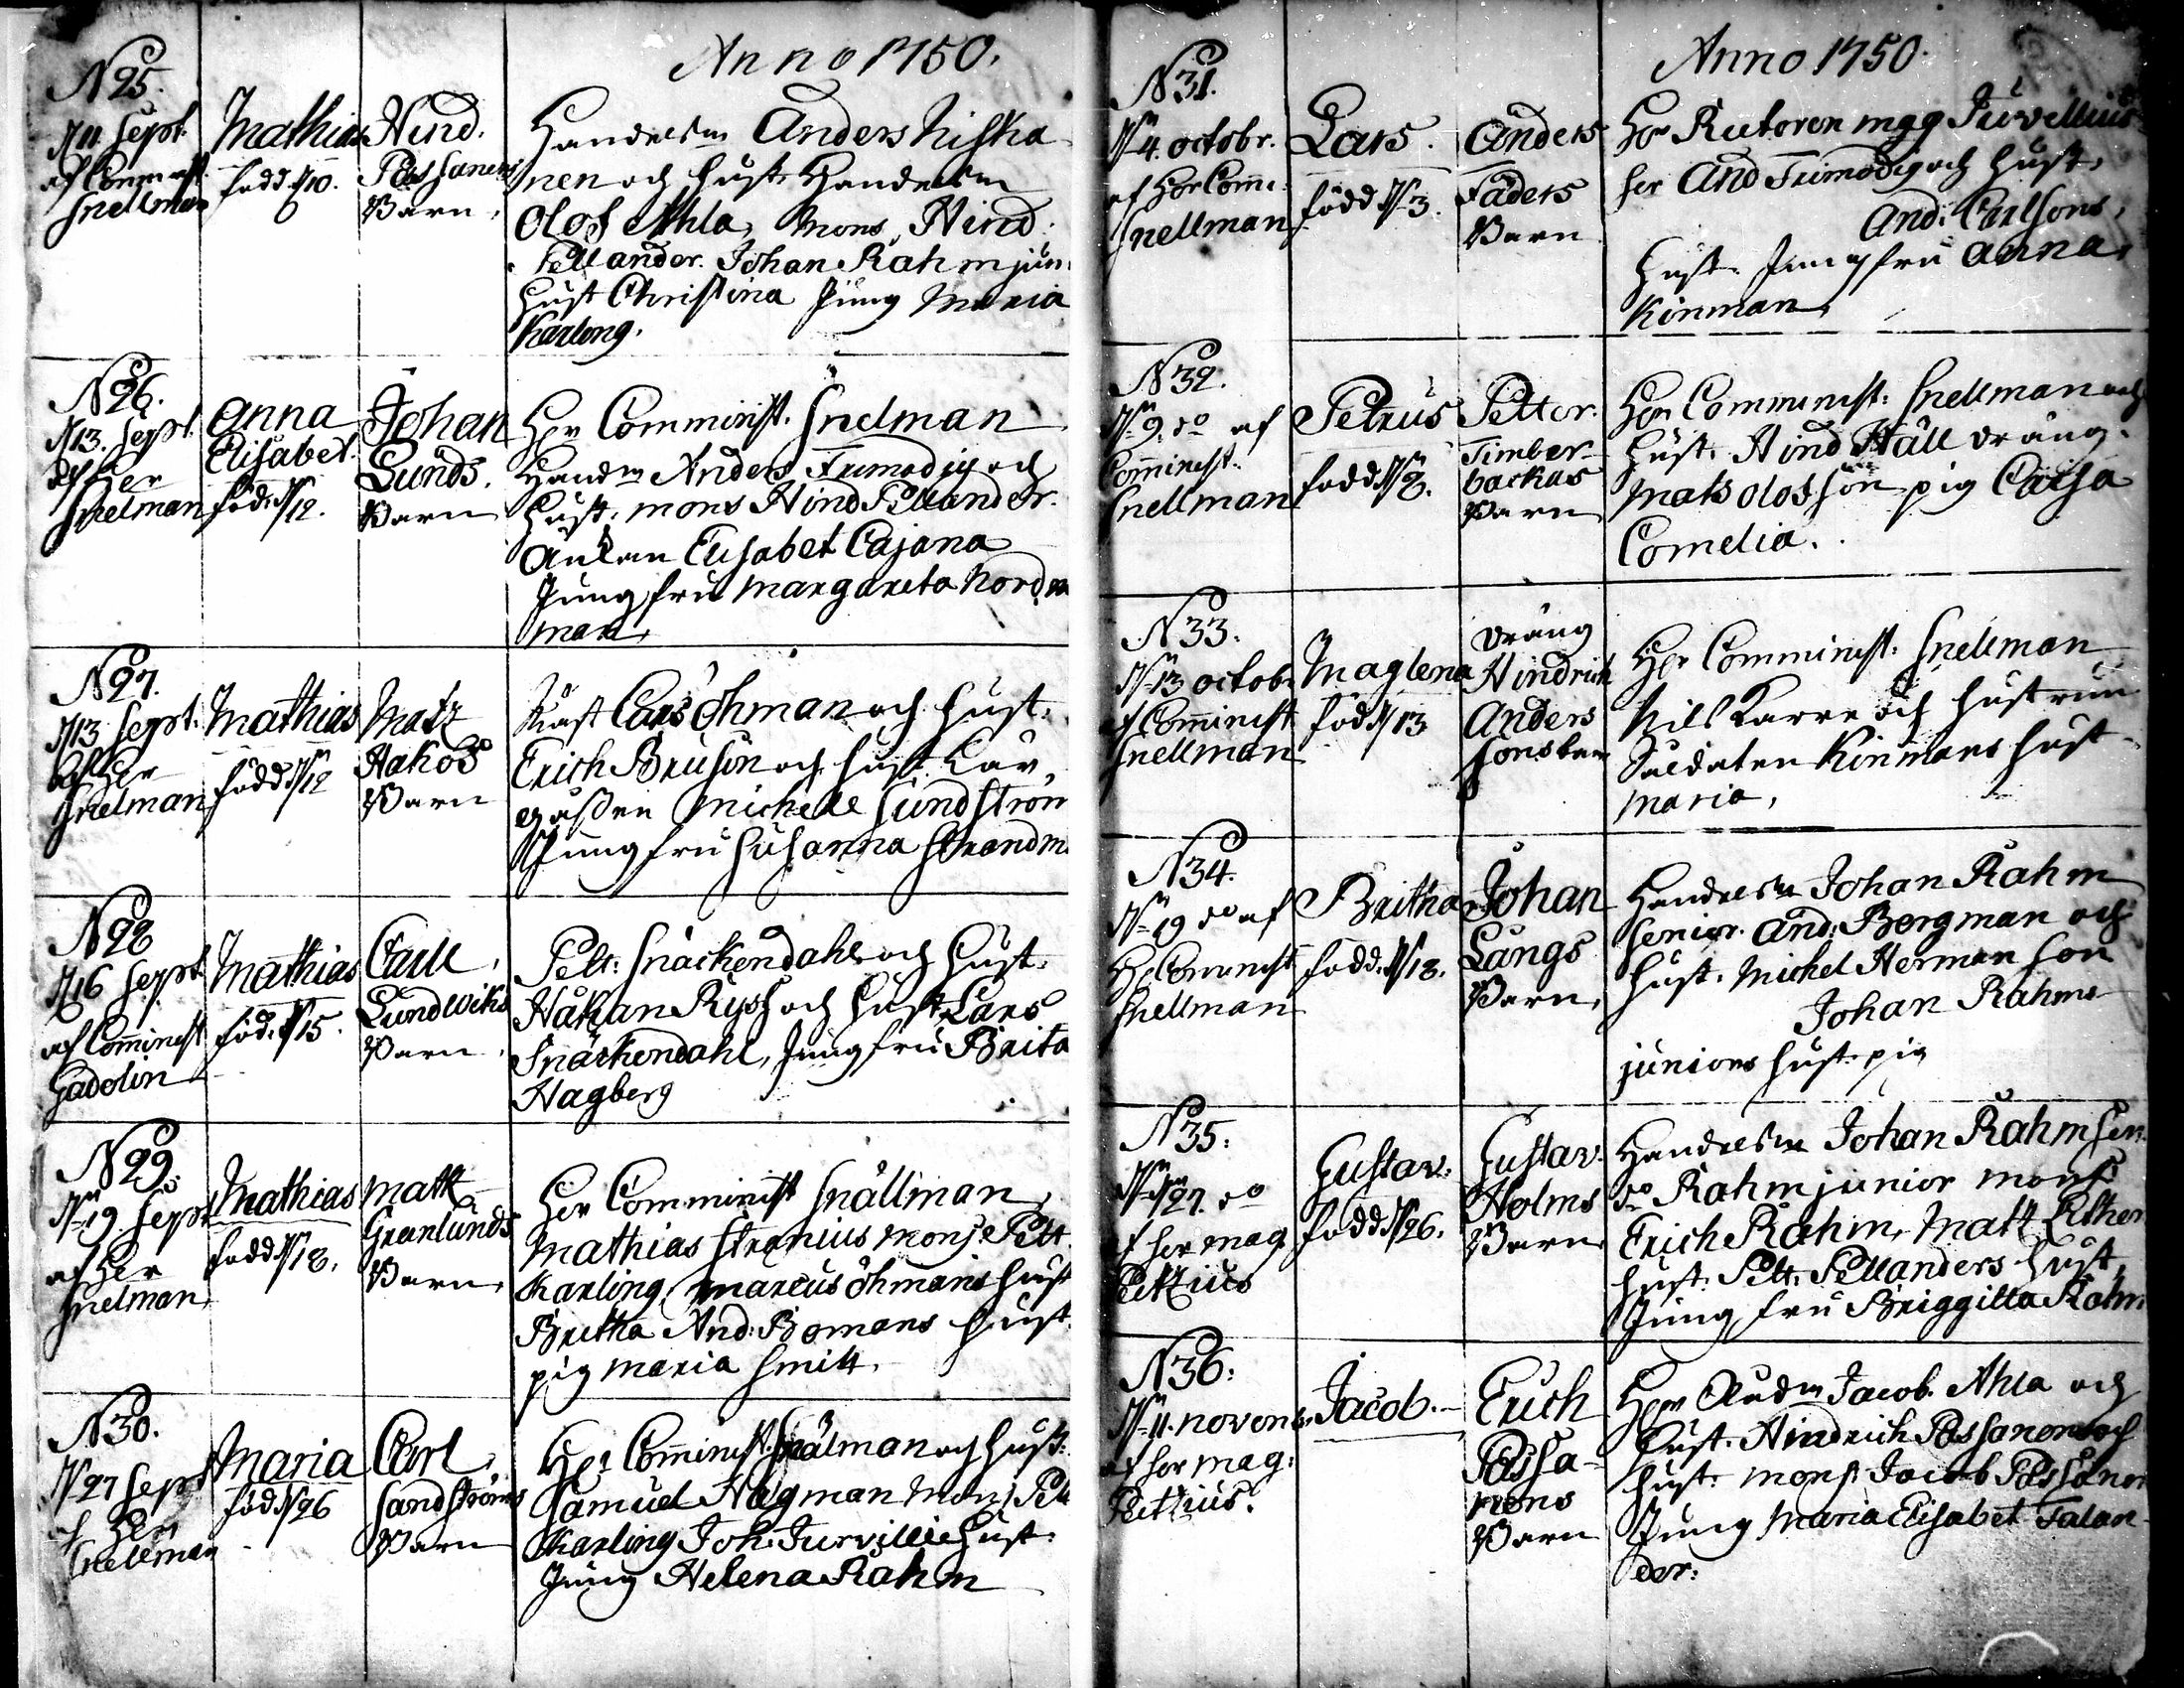 Anno 1750.
N 25.
d 11 Sept.
af Comminist.
Snellman
Mathias
född d 10.
Hind.
Passanens
Barn.
Handelsm Anders Niska
nen och hust. Handelsm
Olof Ahla, Mons. Hind.
Pellander. Johan Rahm jun.
hust Christina Jung Maria
Karling.
N 26.
d 13. Sept.
af Her
Snelman
Anna
Elisabet.
född d 12.
Johan
Lunds.
Barn
Her Comminist. Snelman
Handm Anders Frimodig och
hust. mons Hind Pellander.
Änkan Elisabet Cajana
Jungfru Margareta Nord
man.
N 27.
d 13 Sept.
af Her
Snelman
Mathias
född d 12
Matz
Hakos
Barn
Lars Öhman och hust.
Erich Bruson och hust.
Michell Sundström
Jungfru Susanna Strandm
N 28
d 16 Sept
af Cominist
Gadolin
Mathias
född d 15.
Carll
Lundwiks
Barn
Pett: Snäckendahl och hust.
Håkan Rysk och hust. Lars
Snäckendahl, Jungfru Brita
Hagberg
N 29.
dn 19 Sept
af Her
Snelman
Mathias
född d 18.
Matt
Granlunds
Barn,
Her Comminist Snällman,
Mathias Stranius mons. Pett
Karling, Marcus Öhmans hust
Britha And: Bomans hust.
pig Maria Smitt.
N 30.
d 27 Sept
af Her
Snellman
Maria
född d 26
Carl
Sandströms
Barn
Her Cominist. Snälman och hust:
Samuel Hagman Mons. Pett
Karling Joh. Jurvillii hust:
Jung Helena Rahm
Anno 1750.
N 31.
dn 4. octobr.
af Her Comi.
Snellman
Lars.
född d 3.
Anders
Faders
Barn
Her Rectoren mag Juvellius
her And Frimodig och hust.
And. Carlsons,
hust. Jungfru Anna
Kinman,
N 32.
dn 9. do af
Cominist.
Snellman
Petrus
född d 8.
Petter.
Timber-
backas
Barn
Her Comminist: Snellman och
hust. Hind Häll dräng.
Mats Olosson pig Caisa
Cornelia.
N 33.
dn 13 octob.
af Cominist
Snellman
Maglena
född d 13
Dräng
Hindrich
Anders
sons barn
Her Comminist: Snellman
Nils Karre och hustrun
Soldaten Kinmans hust
Maria,
N 34.
dn 19 do af
Hr Cominist
Snellman
Britha
född. d 18.
Johan
Långs
Barn,
Handelsm Johan Rahm
senior. And: Bergman och
hust. Michel Herman son
Johan Rahms
juniors hust. pig
N 35:
dn 27. do
af her mag
Pettius
Gustav.
född d 26.
Gustav.
Holms
Barn
Handelsm Johan Rahm sen.
do Rahm junior mons
Erich Rahm, Matt
hust: Pett: Pellanders hust,
Jungfru Briggitta Rahm
N 36:
dn 11. novemb.
af her mag:
Pettius.
Jacob.
Erich
Passa-
nens
Barn
Her Jacob. Ahla och
hust. Hindrich Passanen och
hust: mons Jacob Passanen
Jung Maria Elisabet Falan-
der: